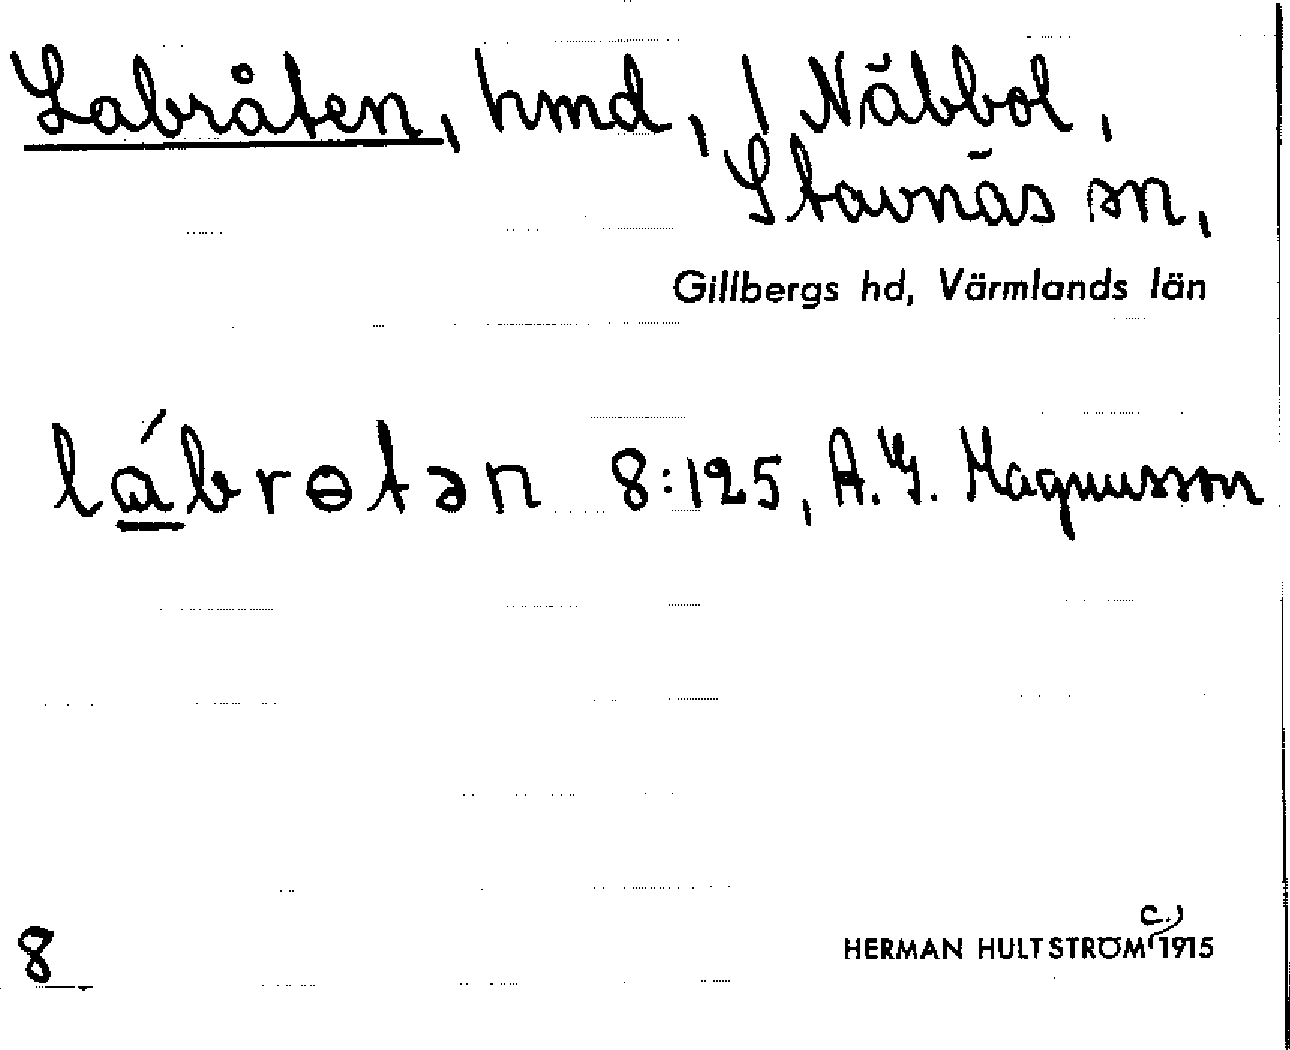 Labråten, hmd, 1 Näbbol,
Stavnäs sn,
Gillbergs hd, Värmlands län
lά̱brɵtən 8:125, A. G. Magnusson
8
HERMAN HULTSTRÖM c. 1915